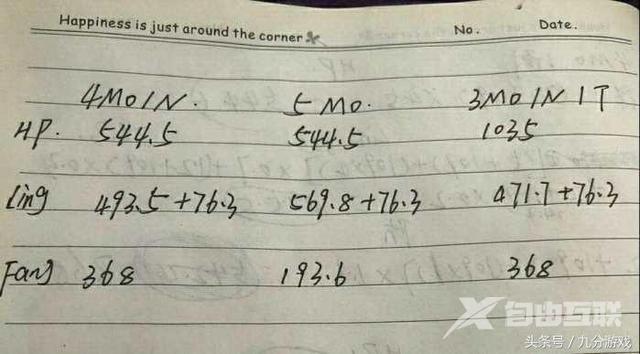 Happiness is just around the corner
No. Date.
4MO1N. 5 MO. 3MO1N 1T
HP. 544.5 544.5 1035
Ling 493.5+76.3 569.8+76.3 471.7+76.3
Fang 368 193.6 368
自由互联
头条号／九分游戏